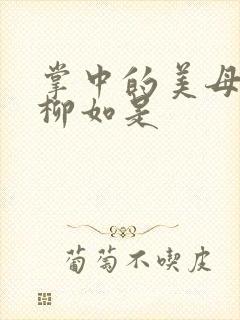 掌中的美母
柳如是
葡萄不喫皮